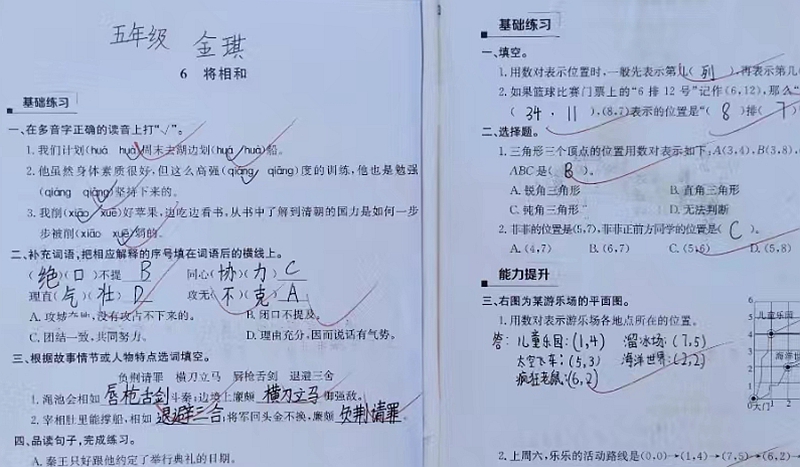 五年级 金琪
6 将相和
基础练习
一、在多音字正确的读音上打“√”。
1.我们计划(huá huà)周末去湖边划(huá huà)船。
2.他虽然身体素质很好,但这么高强(qiáng qiǎng)度的训练,他也是勉强
(qiáng qiǎng)坚持下来的。
3.我削(xiāo xuē)好苹果,边吃边看书,从书中了解到清朝的国力是如何一步
步被削(xiāo xuē)弱的。
二、补充词语,把相应解释的序号填在词语后的横线上。
(绝)(口)不提 B 同心(协)(力) C
理直(气)(壮) D 攻无(不)(克) A
A.攻城,没有攻占不下来的。 B.闭口不提及。
C.团结一致,共同努力。 D.理由充分,因而说话有气势。
三、根据故事情节或人物特点选词填空。
负荆请罪 横刀立马 唇枪舌剑 退避三舍
1.渑池会相如 唇枪古剑 斗秦;边境上廉颇 横刀立马 御强敌。
2.宰相肚里能撑船,相如 退避三合;将军回头金不换,廉颇 负荆请罪。
四、品读句子,完成练习。
A.秦王只好跟他约定了举行典礼的日期。
基础练习
一、填空。
1.用数对表示位置时,一般先表示第几(列),再表示第几(
2.如果篮球比赛门票上的“6排12号”记作(6,12),那么“
(34·11),(8,7)表示的位置是“(8)排(7)
二、选择题。
1.三角形三个顶点的位置用数对表示如下:A(3,4),B(3,8),
ABC是(B)。
A.锐角三角形 B.直角三角形
C.钝角三角形 D.无法判断
2.菲菲的位置是(5,7),菲菲正前方同学的位置是(C)。
A.(4,7) B.(6,7) C.(5,6) D.(5,8)
能力提升
三、右图为某游乐场的平面图。
1.用数对表示游乐场各地点所在的位置。
答:儿童乐园:(1,4) 溜冰场:(7,5)
太空飞车:(5,3) 海洋世界:(2,2)
疯狂老鼠:(6,2)
6
5
儿童乐园
4
3
海洋世
2
1
0
大门
2.上周六,乐乐的活动路线是(0,0)→(1,4)→(7,5)→(6,2)→